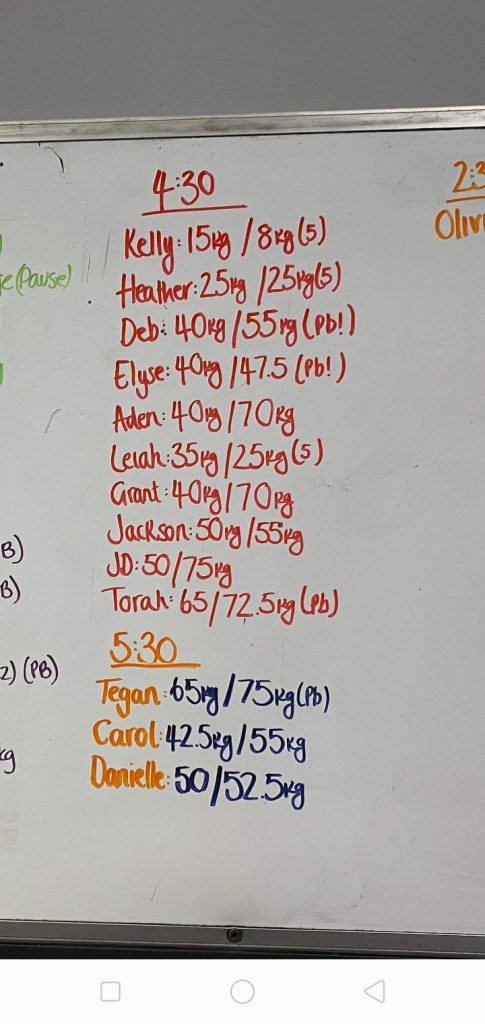 4:30
Kelly: 15kg / 8kg (5)
Heather: 25kg / 25kg (5)
Deb: 40kg / 55kg (Pb!)
Elyse: 40kg / 47.5 (Pb!)
Aden: 40kg / 70kg
Leiah: 35kg / 25kg (5)
Grant: 40kg / 70kg
Jackson: 50kg / 55kg
JD: 50 / 75kg
Torah: 65 / 72.5kg (Pb)
5:30
Tegan: 65kg / 75kg (Pb)
Carol: 42.5kg / 55kg
Danielle: 50 / 52.5kg
(Pause)
B)
B)
2) (PB)
kg
2:3
Olivi